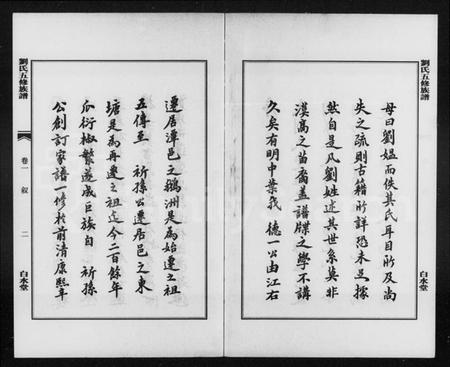 劉氏五修族譜
母曰劉媪而佚其氏耳目所及尚
失之疏則古籍所詳恐未足據
然自是凡劉姓述其世系莫非
漢高之苗裔蓋譜牒之學不講
久矣有明中葉我 德一公由江右
白水堂
遷居潭邑之鵝洲是為始遷之祖
五傳至 祈孫公遷居邑之東
塘是為再遷之祖迄今二百餘年
瓜衍椒繁遂成巨族自 祈孫
公創訂家譜一修於前清康熙辛
劉氏五修族譜
卷一 叙 二
白水堂